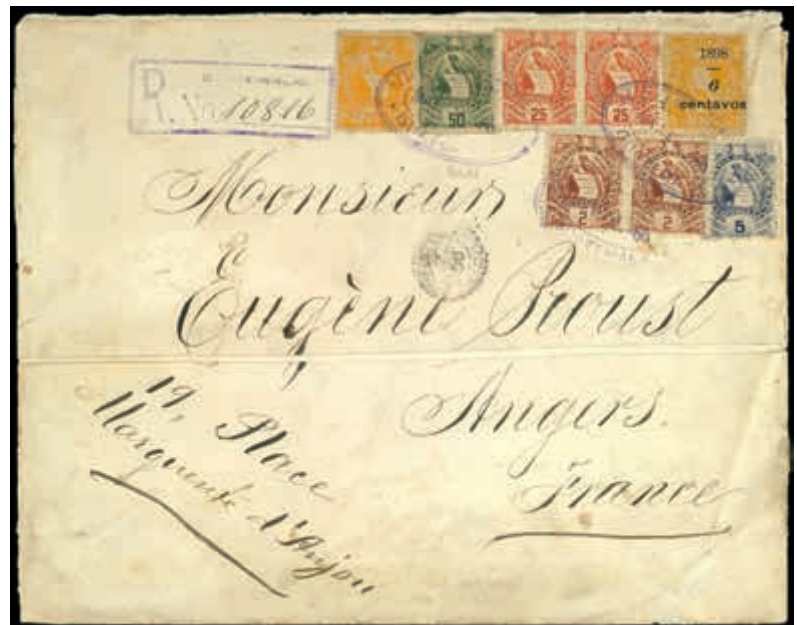 R
No 10816
50
25
25
1898
6
centavos
2
2
5
Monsieur
Eugène Proust
Angers.
France
19, Place
Marguerite d'Anjou